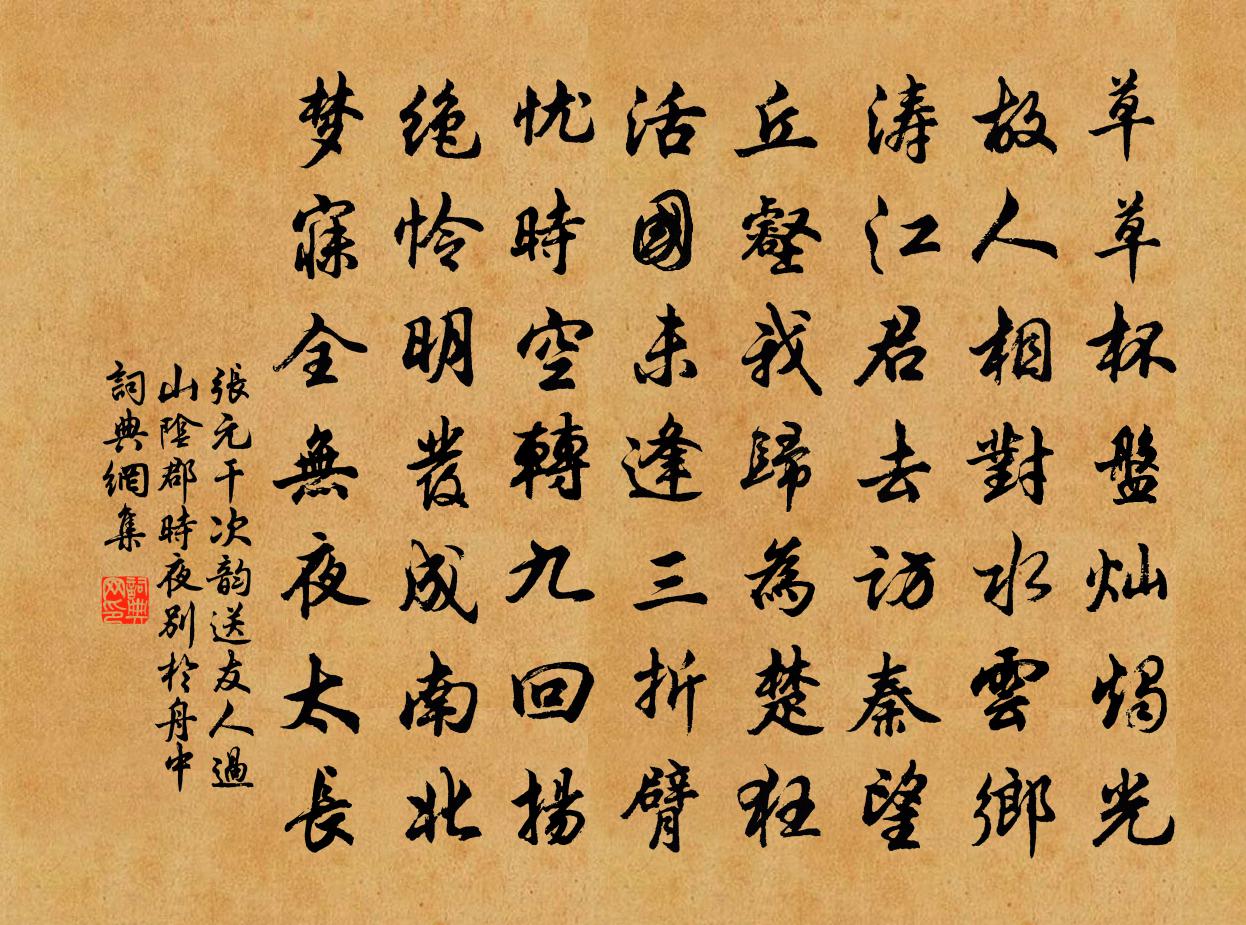 草草杯盤灿燭光
故人相對水雲鄉
涛江君去访秦望
丘壑我歸為楚狂
活國未逢三折臂
忧時空轉九回揚
绝怜明發成南北
梦寐全無夜太長
張元干次韵送友人過
山陰郡時夜别於舟中
詞典網集
詞典网印